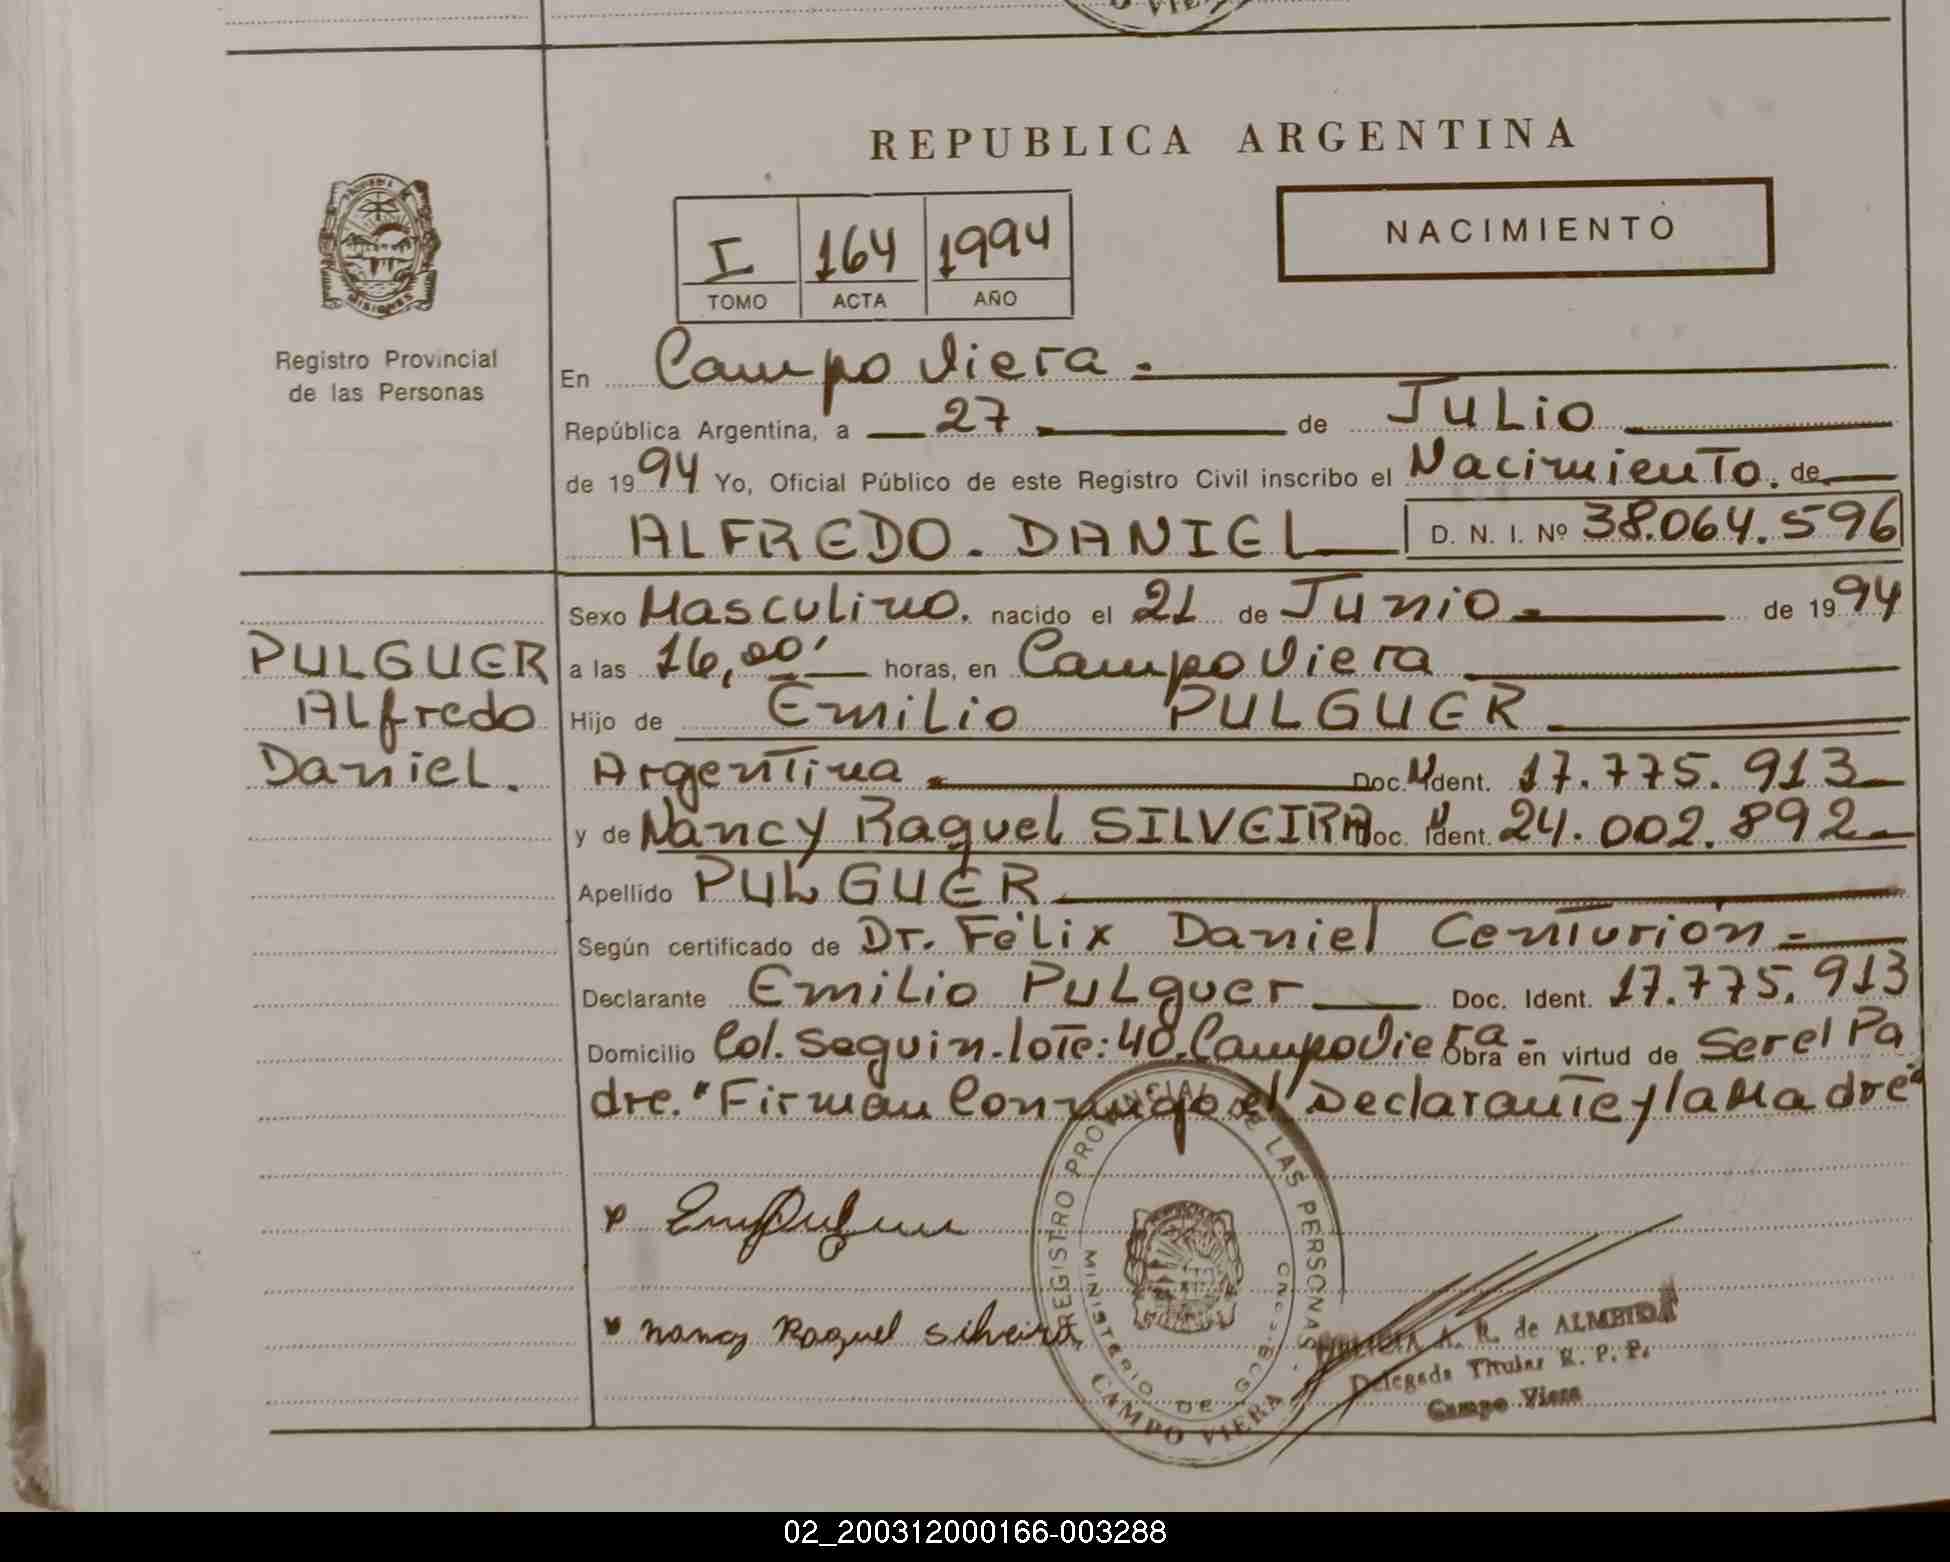 REPUBLICA ARGENTINA
NACIMIENTO
I 164 1994
TOMO ACTA AÑO
MISIONES
Registro Provincial
de las Personas
En Campo Viera.-
República Argentina, a 27 de Julio
de 1994 Yo, Oficial Público de este Registro Civil inscribo el Nacimiento. de
ALFREDO. DANIEL D. N. I. Nº 38.064.596
Sexo Masculino. nacido el 21 de Junio.- de 1994
PULGUER
Alfredo
Daniel.
a las 16,00' horas, en Campo Viera
Hijo de Emilio PULGUER
Argentina Doc. Ident. 17.775.913
y de Nancy Raquel SILVEIRA Doc. Ident. 24.002.892
Apellido PULGUER
Según certificado de Dr. Félix Daniel Centurión-
Declarante Emilio Pulguer Doc. Ident. 17.775.913
Domicilio Col. Seguin-lote:40.Campo Viera- Obra en virtud de Ser el Pa
dre. "Firman Conmigo el Declarante y la Madre"
Nancy Raquel Silveira
REGISTRO PROVINCIAL DE LAS PERSONAS
MINISTERIO DE GOB.
CAMPO VIERA
A. R. de ALMEIDA
Delegada Titular R. P. P.
Campo Viera
02_200312000166-003288